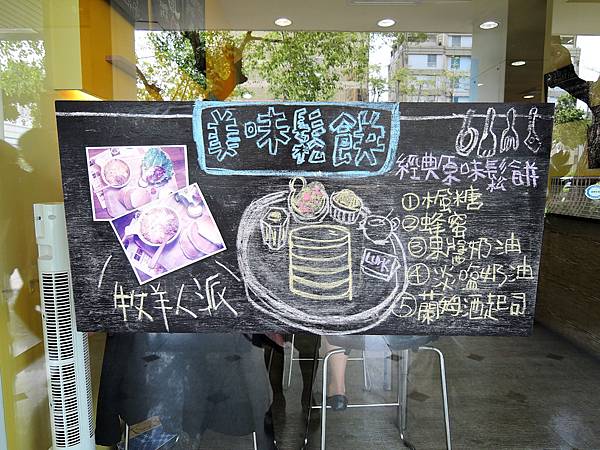 美味鬆餅
經典原味鬆餅
①楓糖
②蜂蜜
③果醬奶油
④淡鹽奶油
⑤蘭姆酒起司
牧羊人派